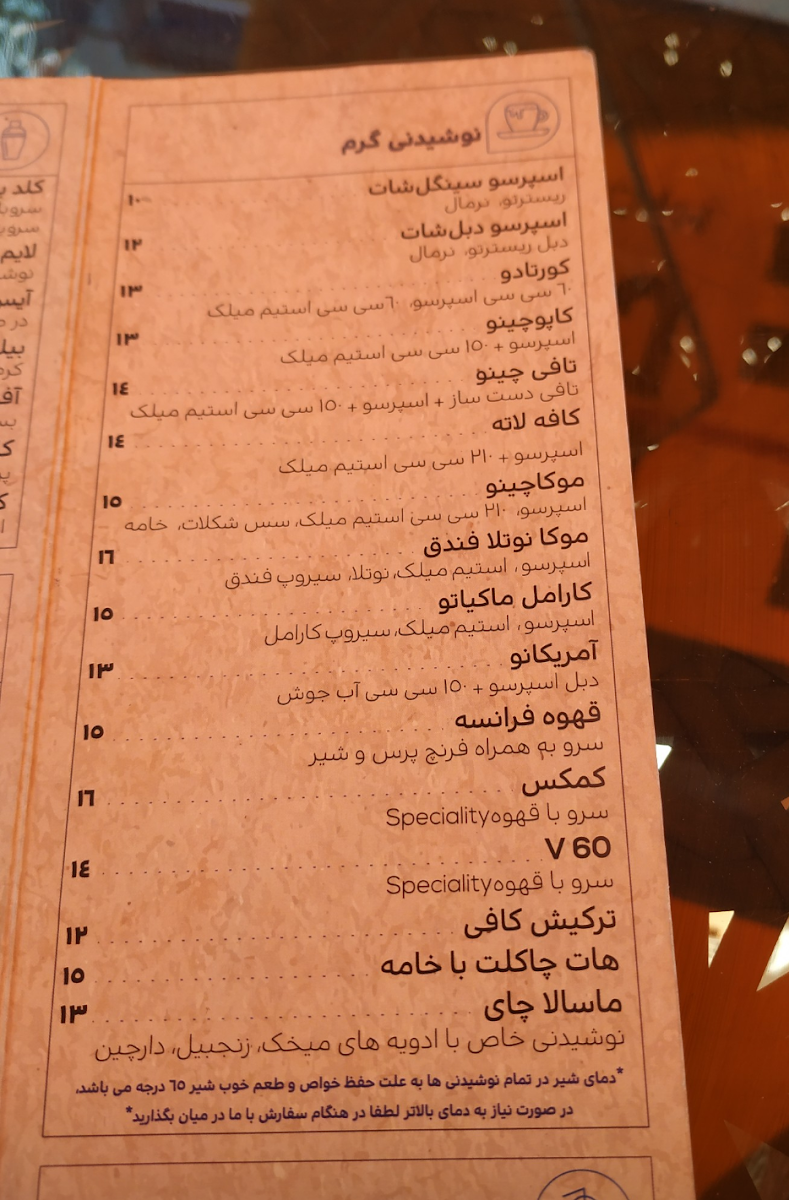 نوشیدنی گرم
اسپرسو سینگل‌شات ۱۰
ریسترتو، نرمال
اسپرسو دبل‌شات ۱۲
دبل ریسترتو، نرمال
کورتادو ۱۳
۶۰ سی سی اسپرسو، ۶۰ سی سی استیم میلک
کاپوچینو ۱۳
اسپرسو + ۱۵۰ سی سی استیم میلک
تافی چینو ۱٤
تافی دست ساز + اسپرسو + ۱۵۰ سی سی استیم میلک
کافه لاته ۱٤
اسپرسو + ۲۱۰ سی سی استیم میلک
موکاچینو ۱۵
اسپرسو، ۲۱۰ سی سی استیم میلک، سس شکلات، خامه
موکا نوتلا فندق ۱٦
اسپرسو، استیم میلک، نوتلا، سیروپ فندق
کارامل ماکیاتو ۱۵
اسپرسو، استیم میلک، سیروپ کارامل
آمریکانو ۱۳
دبل اسپرسو + ۱۵۰ سی سی آب جوش
قهوه فرانسه ۱۵
سرو به همراه فرنچ پرس و شیر
کمکس ۱٦
سرو با قهوه Speciality
V 60 ۱٤
سرو با قهوه Speciality
ترکیش کافی ۱۲
هات چاکلت با خامه ۱۵
ماسالا چای ۱۳
نوشیدنی خاص با ادویه های میخک، زنجبیل، دارچین
*دمای شیر در تمام نوشیدنی ها به علت حفظ خواص و طعم خوب شیر ٦۵ درجه می باشد،
در صورت نیاز به دمای بالاتر لطفا در هنگام سفارش با ما در میان بگذارید*